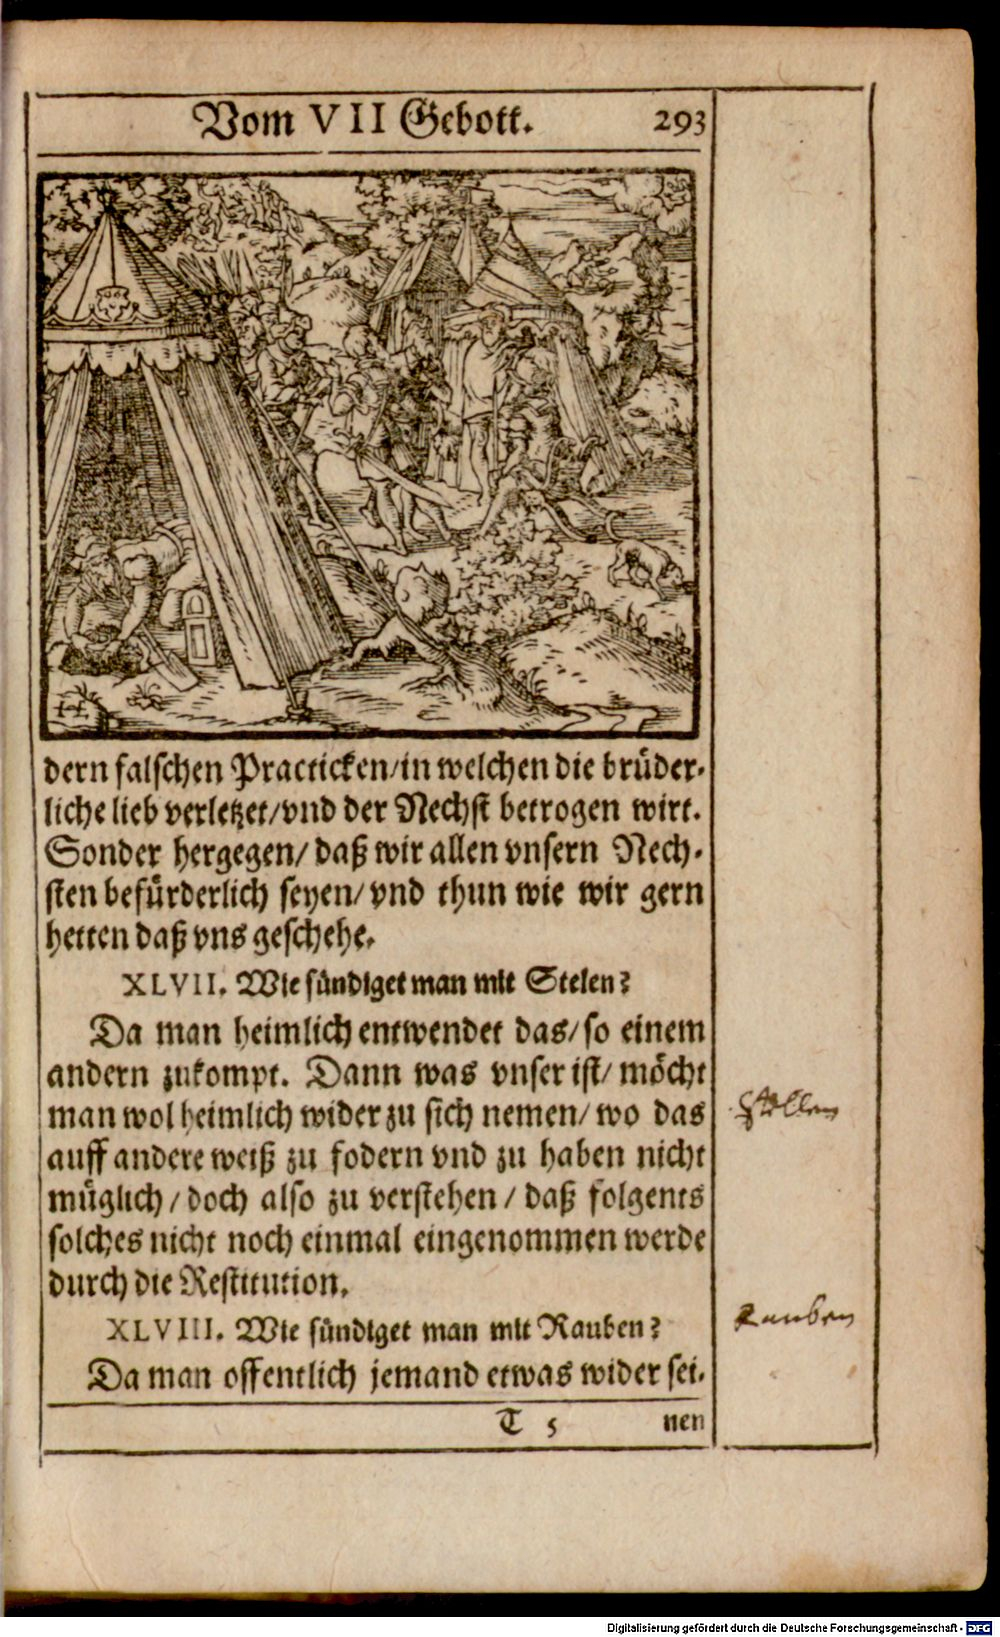 Vom VII Gebott. 293
H
dern falschen Practicken/in welchen die brüder-
liche lieb verletzet/vnd der Nechst betrogen wirt.
Sonder hergegen/ daß wir allen vnsern Nech-
sten befürderlich seyen/ vnd thun wie wir gern
hetten daß vns geschehe.
XLVII. Wie sündiget man mit Stelen?
Da man heimlich entwendet das/ so einem
andern zukompt. Dann was vnser ist/ möcht
man wol heimlich wider zu sich nemen/ wo das
auff andere weiß zu fodern vnd zu haben nicht
müglich / doch also zu verstehen / daß folgents
solches nicht noch einmal eingenommen werde
durch die Restitution.
XLVIII. Wie sündiget man mit Rauben?
Da man offentlich jemand etwas wider sei-
T 5 nen
Stellen
Rauben
Digitalisierung gefördert durch die Deutsche Forschungsgemeinschaft - DFG